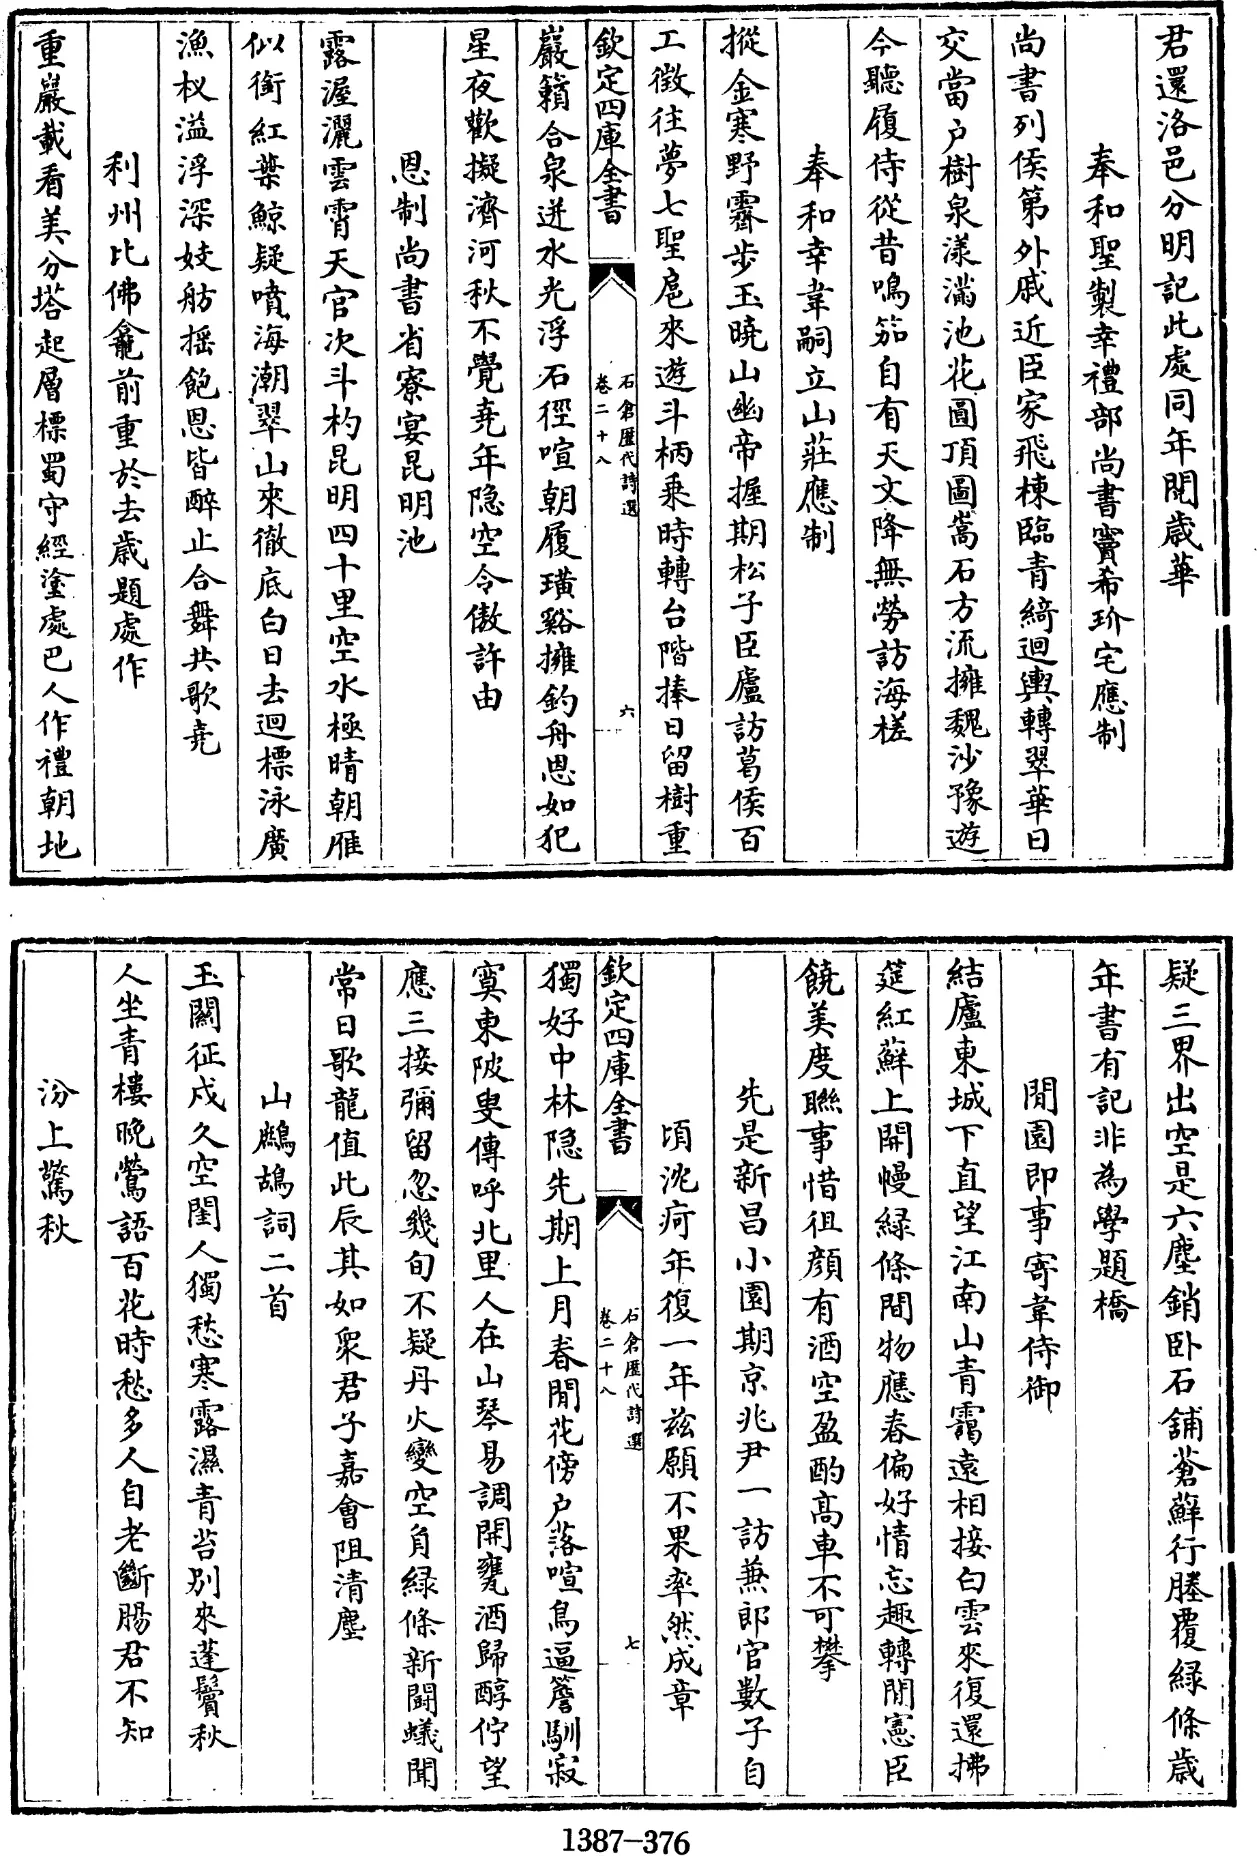 君還洛邑分明記此處同年閱歲華
奉和聖製幸禮部尚書竇希玠宅應制
尚書列侯第外戚近臣家飛棟臨青綺迴輿轉翠華日
交當户樹泉漾滿池花圓頂圖嵩石方流擁魏沙豫遊
今聽履侍從昔鳴笳自有天文降無勞訪海槎
奉和幸韋嗣立山莊應制
摐金寒野霽步玉曉山幽帝握期松子臣廬訪葛侯百
工徴往夢七聖扈來遊斗柄乗時轉台階捧日留樹重
欽定四庫全書
石倉歴代詩選
卷二十八
六
巖籟合泉迸水光浮石徑喧朝履璜谿擁釣舟恩如犯
星夜歡擬濟河秋不覺堯年隐空令傲許由
恩制尚書省寮宴昆明池
露渥灑雲霄天官次斗杓昆明四十里空水極晴朝雁
似銜紅葉鯨疑噴海潮翠山來徹底白日去迴標泳廣
漁杈溢浮深妓舫揺飽恩皆醉止合舞共歌堯
利州比佛龕前重於去歲題處作
重巖載看美分塔起層標蜀守經塗處巴人作禮朝地
疑三界出空是六塵銷卧石鋪蒼蘚行塍覆緑條歳
年書有記非為學題橋
閒園即事寄韋侍御
結廬東城下直望江南山青靄遠相接白雲來復還拂
筵紅蘚上開幔緑條間物應春偏好情忘趣轉閒憲臣
饒美度聮事惜徂顔有酒空盈酌髙車不可攀
先是新昌小園期京兆尹一訪兼郎官數子自
頃沈疴年復一年兹願不果率然成章
欽定四庫全書
石倉歴代詩選
卷二十八
七
獨好中林隐先期上月春閒花傍户落喧鳥逼簷馴寂
寞東陂叟傳呼北里人在山琴易調開甕酒歸醇佇望
應三接彌留忽幾旬不疑丹火變空負緑條新闘蟻聞
常日歌龍值此辰其如衆君子嘉會阻清塵
山鷓鴣詞二首
玉關征戍久空閨人獨愁寒露濕青苔别來蓬鬢秋
人坐青樓晩鶯語百花時愁多人自老斷腸君不知
汾上驚秋
1387-376